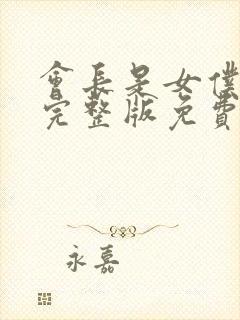 會長是女僕
完整版免費
永嘉